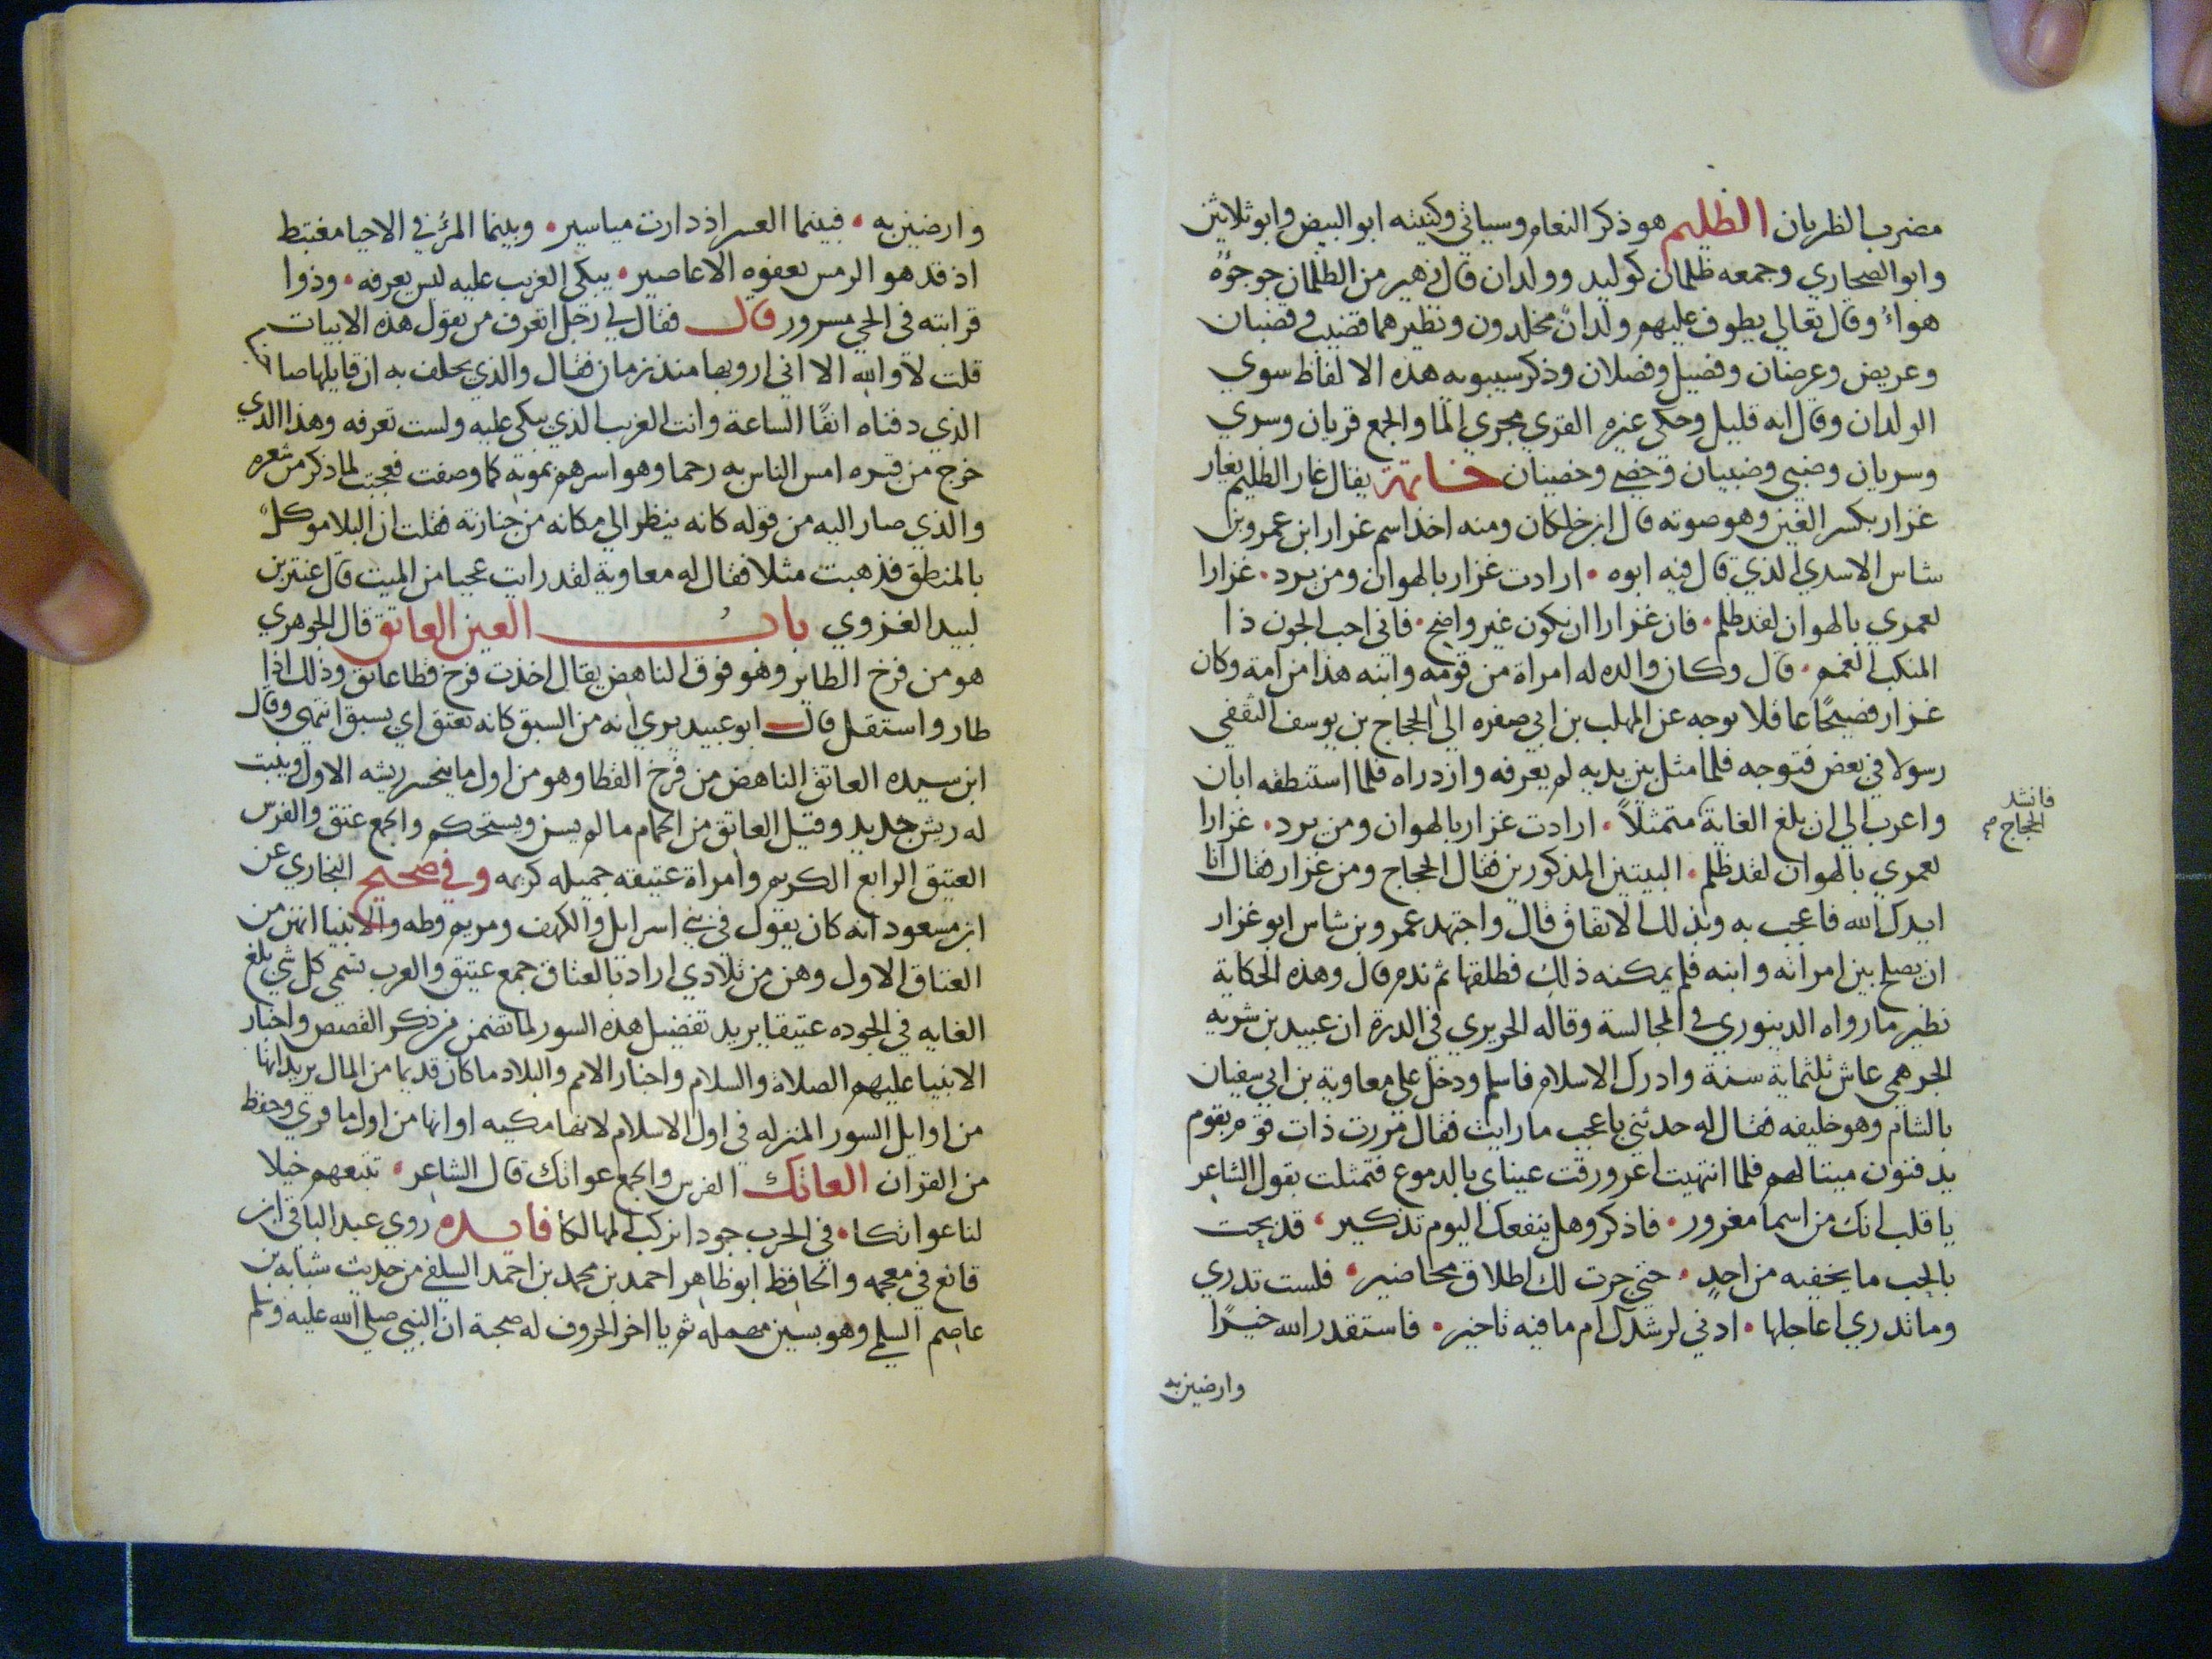 مضرب الظربان الظليم هو ذكر النعام وسياتي وكنيته ابو البيض وابو ثلاثين
وابو الصحاري وجمعه ظلمان كوليد وولدان قال زهير من الظلمان جوجوه
هواء وقال تعالي يطوف عليهم ولدان مخلدون ونظيرهما قضيب وقضبان
وعريض وعرضان وفصيل وفصلان وذكر سيبويه هذه الالفاظ سوي
الولدان وقال انه قليل وحكي غيره القري مجري الما والجمع قريان وسري
وسريان وصبي وصبيان وخصي وخصيان خاتمة يقال غار الظليم يغار
غزار بكسر الغين وهو صوته قال ابن خلكان ومنه اخذ اسم غزار ابن عمرو بن
شاس الاسدي الذي قال فيه ابوه • ارادت غزار بالهوان ومن يرد • غزارا
لعمري بالهوان لقد ظلم • فان غزارا ان يكون غير واضح • فاني احب الجون ذا
المنكب العمم • قال وكان والده له امراة من قومه وابنه هذا من امة وكان
غزار فصيحًا عاقلا توجه عن المهلب بن ابي صفره الي الحجاج بن يوسف الثقفي
رسولا في بعض فتوجه فلما مثل بين يديه لم يعرفه وازدراه فلما استنطقه ابان
واعرب الي ان بلغ الغاية متمثلاً • ارادت غزار بالهوان ومن يرد • غزارا
فانشد
الحجاج صح
لعمري بالهوان لقد ظلم • البيتين المذكورين فقال الحجاج ومن غزار فقال انا
ايدك الله فاعجب به وبذلك الاتفاق قال واجتهد عمرو بن شاس ابو غزار
ان يصلح بين امراته وابنه فلم يمكنه ذلك فطلقها ثم ندم قال وهذه الحكاية
نظير ما رواه الدينوري في المجالسة وقاله الحريري في الدرة ان عبيد بن شريه
الجرهمي عاش ثلثماية سنة وادرك الاسلام فاسلم ودخل علي معاوية بن ابي سفيان
بالشام وهو خليفه فقال له حدثني باعجب ما رايت فقال مررت ذات يوم بقوم
يدفنون ميتا لهم فلما انتهيت اغرورقت عيناي بالدموع فتمثلت بقول الشاعر
يا قلب انك من اسما مغرور • فاذكر وهل ينفعك اليوم تذكير • قد بحت
بالحب ما يخفيه من احدٍ • حتي جرت لك اطلاق محاضير • فلست تدري
وما تدري اعاجلها • ادني لرشدك ام ما فيه تاخير • فاستقدر الله خيرًا
وارضين به
وارضين به • فبينما العسر اذ دارت مياسير • وبينما المرء في الاحيا مغتبط
اذ قد هو الرمس تعفوه الاعاصير • يبكي الغريب عليه ليس يعرفه • وذوا
قرابته في الحي مسرور قال فقال لي رجل اتعرف من يقول هذه الابيات
قلت لا والله الا اني ارويها منذ زمان فقال والذي يحلف به ان قايلها صاحبكم
الذي دفناه انفًا الساعة وانت الغريب الذي يبكي عليه ولست تعرفه وهذا الذي
خرج من قبره امس الناس به رحما وهو اسرهم بموته كما وصفت فعجبت لما ذكر من شعره
والذي صار اليه من قوله كانه ينظر الي مكانه من جنازته فقلت ان البلا موكلً
بالمنطق فذهبت مثلا فقال له معاوية لقد رايت عجبا من الميت قال عنتر بن
لبيد الغزوي باب العين العاتق قال الجوهري
هو من فرخ الطاير وهو فوق الناهض يقال اخذت فرخ قطا عاتق وذلك اذا
طار واستقل قال ابو عبيد يري انه من السبق كانه يعتق اي يسبق انتهي وقال
ابن سيده العاتق الناهض من فرخ القطا وهو من اول ما ينحسر ريشه الاول وينبت
له ريش جديد وقيل العاتق من الحمام ما لم يسن ويستحكم والجمع عتق والفرس
العتيق الرابع الكريم وامراة عتيقه جميله كريمه وفي صحيح البخاري عن
ابن مسعود انه كان يقول في بني اسرايل والكهف ومريم وطه والانبيا انهن من
العتاق الاول وهن من تلادي اراد بالعتاق جمع عتيق والعرب تسمي كل شي بلغ
الغايه في الجوده عتيقا يريد تفضيل هذه السور لما تضمن من ذكر القصص واخبار
الانبيا عليهم الصلاة والسلام واخبار الامم والبلاد ما كان قديما من المال يريد انها
من اوايل السور المنزله في اول الاسلام لانها مكيه او انها من اول ما قري وحفظ
من القران العاتك الفرس والجمع عواتك قال الشاعر • نتبعهم خيلا
لنا عواتكا • في الحرب جودا تركب المهالكا فايده روي عبد الباقي ابن
قانع في معجمه والحافظ ابو طاهر احمد بن محمد بن احمد السلفي من حديث شبابه بن
عاصم السلمي وهو بسين مهمله ثم يا اخر الحروف له صحبة ان النبي صلي الله عليه وسلم